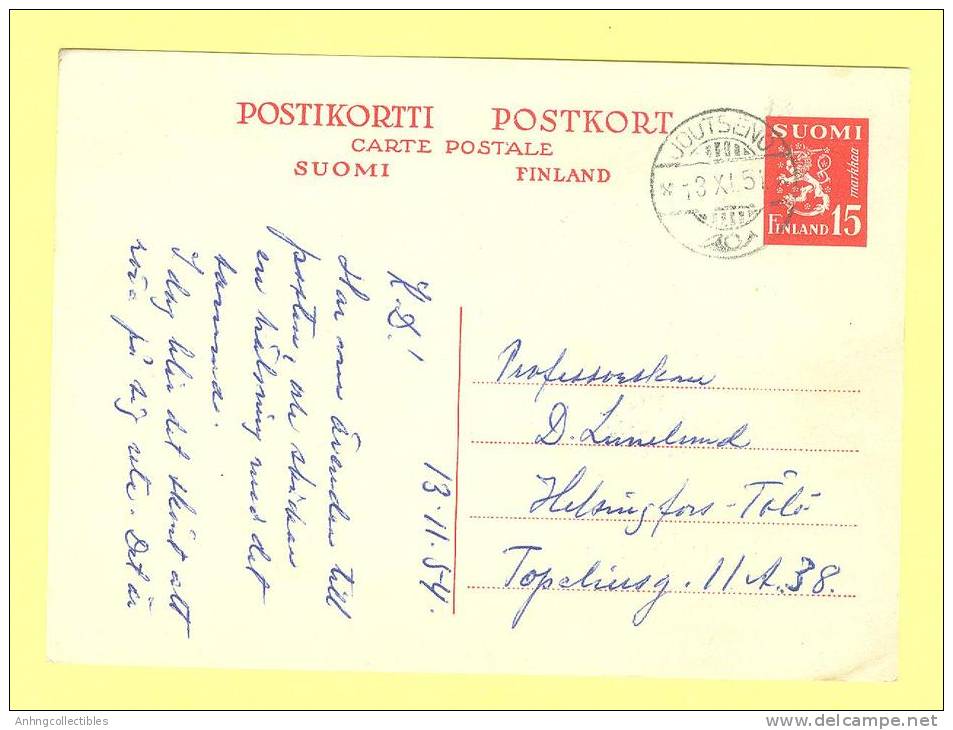 POSTIKORTTI POSTKORT
CARTE POSTALE
SUOMI FINLAND
JOUTSENO
13 XI. 5
SUOMI
markkaa
FINLAND 15
13.11.54.
K. D.!
Har ärenden till
posten, och skickar
en hälsning med det
samma.
I dag blir det skönt att
röra på sig ute. Det är
Professorskan
D. Lunelund
Helsingfors-Tölö
Topeliusg. 11 A. 38.
Anhngcollectibles
www.delcampe.net